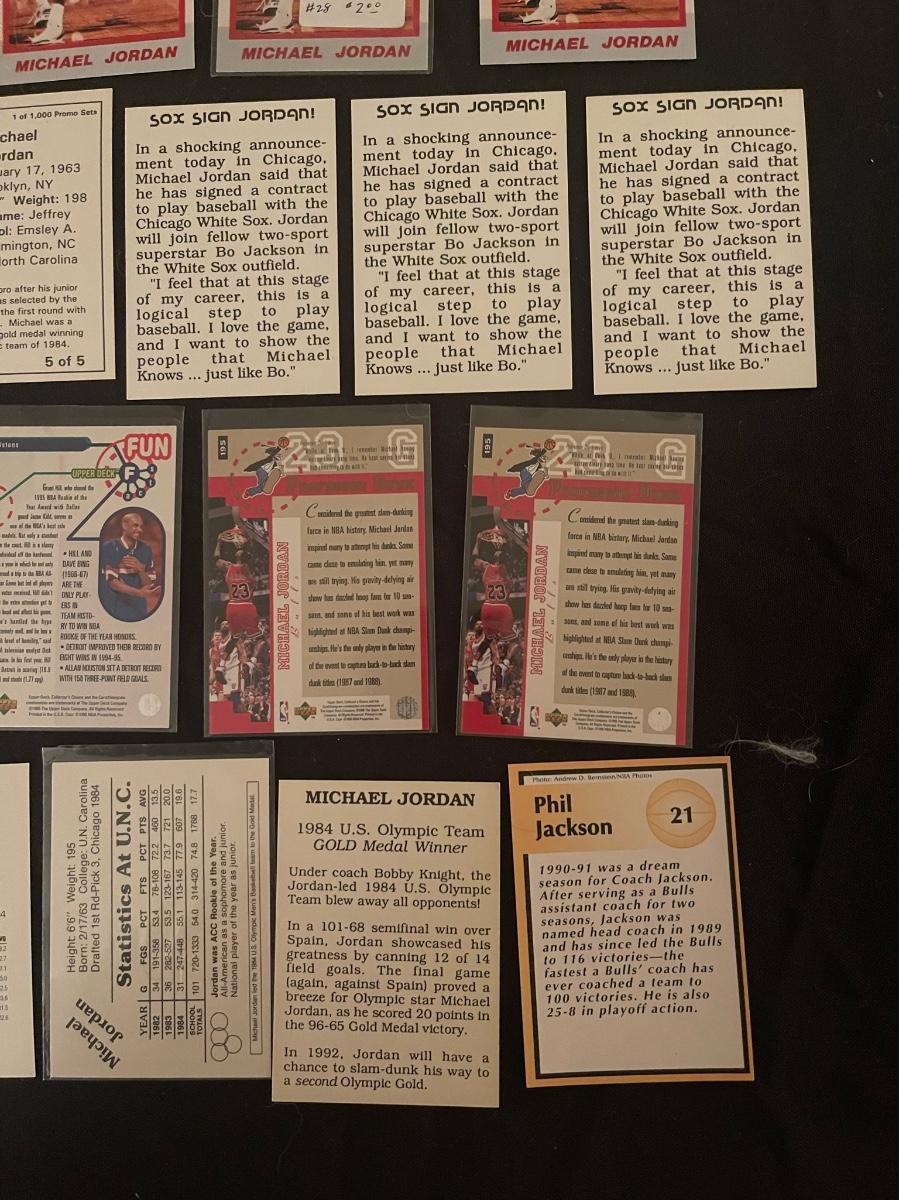 MICHAEL JORDAN
#28 $2.00
MICHAEL JORDAN
MICHAEL JORDAN
1 of 1,000 Promo Sets
chael
rdan
uary 17, 1963
oklyn, NY
" Weight: 198
ame: Jeffrey
ol: Emsley A.
mington, NC
orth Carolina
pro after his junior
as selected by the
the first round with
. Michael was a
gold medal winning
c team of 1984.
5 of 5
SOX SIGN JORDAN!
In a shocking announce-
ment today in Chicago,
Michael Jordan said that
he has signed a contract
to play baseball with the
Chicago White Sox. Jordan
will join fellow two-sport
superstar Bo Jackson in
the White Sox outfield.
"I feel that at this stage
of my career, this is a
logical step to play
baseball. I love the game,
and I want to show the
people that Michael
Knows ... just like Bo."
SOX SIGN JORDAN!
In a shocking announce-
ment today in Chicago,
Michael Jordan said that
he has signed a contract
to play baseball with the
Chicago White Sox. Jordan
will join fellow two-sport
superstar Bo Jackson in
the White Sox outfield.
"I feel that at this stage
of my career, this is a
logical step to play
baseball. I love the game,
and I want to show the
people that Michael
Knows ... just like Bo."
SOX SIGN JORDAN!
In a shocking announce-
ment today in Chicago,
Michael Jordan said that
he has signed a contract
to play baseball with the
Chicago White Sox. Jordan
will join fellow two-sport
superstar Bo Jackson in
the White Sox outfield.
"I feel that at this stage
of my career, this is a
logical step to play
baseball. I love the game,
and I want to show the
people that Michael
Knows ... just like Bo."
FUN
UPPER DECK
F
Grant Hill, who shared the
1995 NBA Rookie of the
Year Award with Dallas
guard Jason Kidd, serves as
one of the NBA's best role
• HILL AND
DAVE BING
(1966-67)
ARE THE
ONLY PLAY-
ERS IN
TEAM HISTO-
RY TO WIN NBA
ROOKIE OF THE YEAR HONORS.
• DETROIT IMPROVED THEIR RECORD BY
EIGHT WINS IN 1994-95.
• ALLAN HOUSTON SET A DETROIT RECORD
WITH 158 THREE-POINT FIELD GOALS.
195
23 G
Considered the greatest slam-dunking
force in NBA history, Michael Jordan
inspired many to attempt his dunks. Some
came close to emulating him, yet many
are still trying. His gravity-defying air
show has dazzled hoop fans for 10 sea-
sons, and some of his best work was
highlighted at NBA Slam Dunk champi-
onships. He's the only player in the history
of the event to capture back-to-back slam
dunk titles (1987 and 1988).
MICHAEL JORDAN
Bulls
23
195
23 G
Considered the greatest slam-dunking
force in NBA history, Michael Jordan
inspired many to attempt his dunks. Some
came close to emulating him, yet many
are still trying. His gravity-defying air
show has dazzled hoop fans for 10 sea-
sons, and some of his best work was
highlighted at NBA Slam Dunk champi-
onships. He's the only player in the history
of the event to capture back-to-back slam
dunk titles (1987 and 1988).
MICHAEL JORDAN
Bulls
23
Michael
Jordan
Height: 6'6" Weight: 195
Born: 2/17/63 College: U.N. Carolina
Drafted 1st Rd-Pick 3, Chicago 1984
Statistics At U.N.C.
YEAR G FGS PCT FTS PCT PTS AVG
1982 34 191-358 53.4 78-108 72.2 460 13.5
1983 36 282-527 53.5 123-167 73.7 721 20.0
1984 31 247-448 55.1 113-145 77.9 607 19.6
SCHOOL
TOTALS 101 720-1333 54.0 314-420 74.8 1788 17.7
Jordan was ACC Rookie of the Year.
All-American as a sophomore and junior.
National player of the year as junior.
Michael Jordan led the 1984 U.S. Olympic Men's Basketball team to the Gold Medal.
MICHAEL JORDAN
1984 U.S. Olympic Team
GOLD Medal Winner
Under coach Bobby Knight, the
Jordan-led 1984 U.S. Olympic
Team blew away all opponents!
In a 101-68 semifinal win over
Spain, Jordan showcased his
greatness by canning 12 of 14
field goals. The final game
(again, against Spain) proved a
breeze for Olympic star Michael
Jordan, as he scored 20 points in
the 96-65 Gold Medal victory.
In 1992, Jordan will have a
chance to slam-dunk his way to
a second Olympic Gold.
Photo: Andrew D. Bernstein/NBA Photos
Phil
Jackson
21
1990-91 was a dream
season for Coach Jackson.
After serving as a Bulls
assistant coach for two
seasons, Jackson was
named head coach in 1989
and has since led the Bulls
to 116 victories—the
fastest a Bulls' coach has
ever coached a team to
100 victories. He is also
25-8 in playoff action.